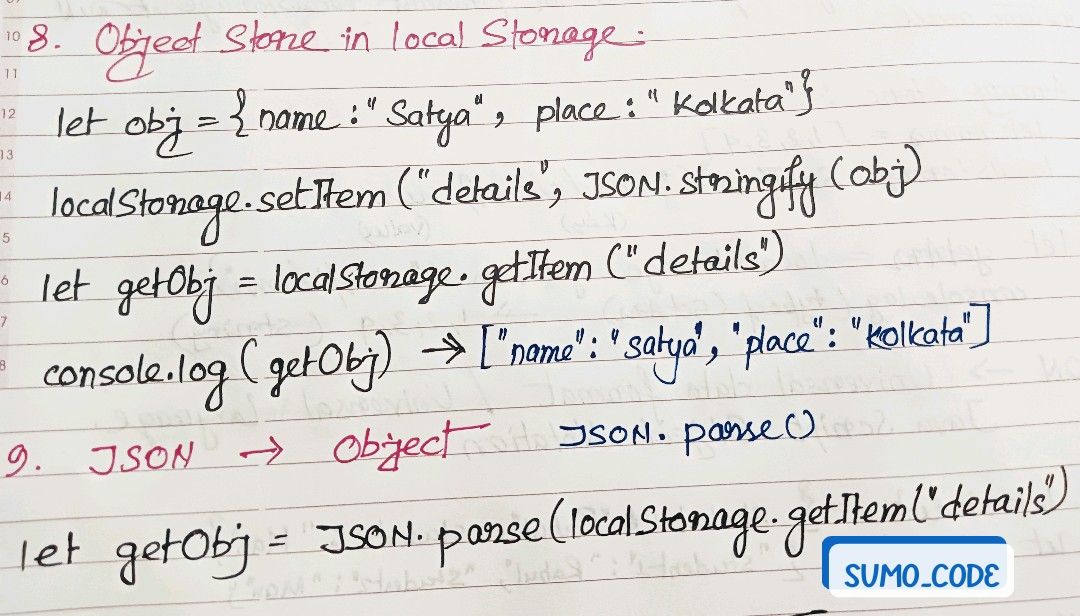 8. Object Store in local Storage.
let obj = {name : "Satya", place : "Kolkata"}
localStorage.setItem ("details", JSON.stringify (obj)
let getObj = localStorage.getItem ("details")
console.log (getObj) → ["name" : "Satya", "place" : "Kolkata"]
9. JSON → Object JSON.parse()
let getObj = JSON.parse(localStorage.getItem("details")
SUMO_CODE
10
11
12
13
14
5
6
7
8